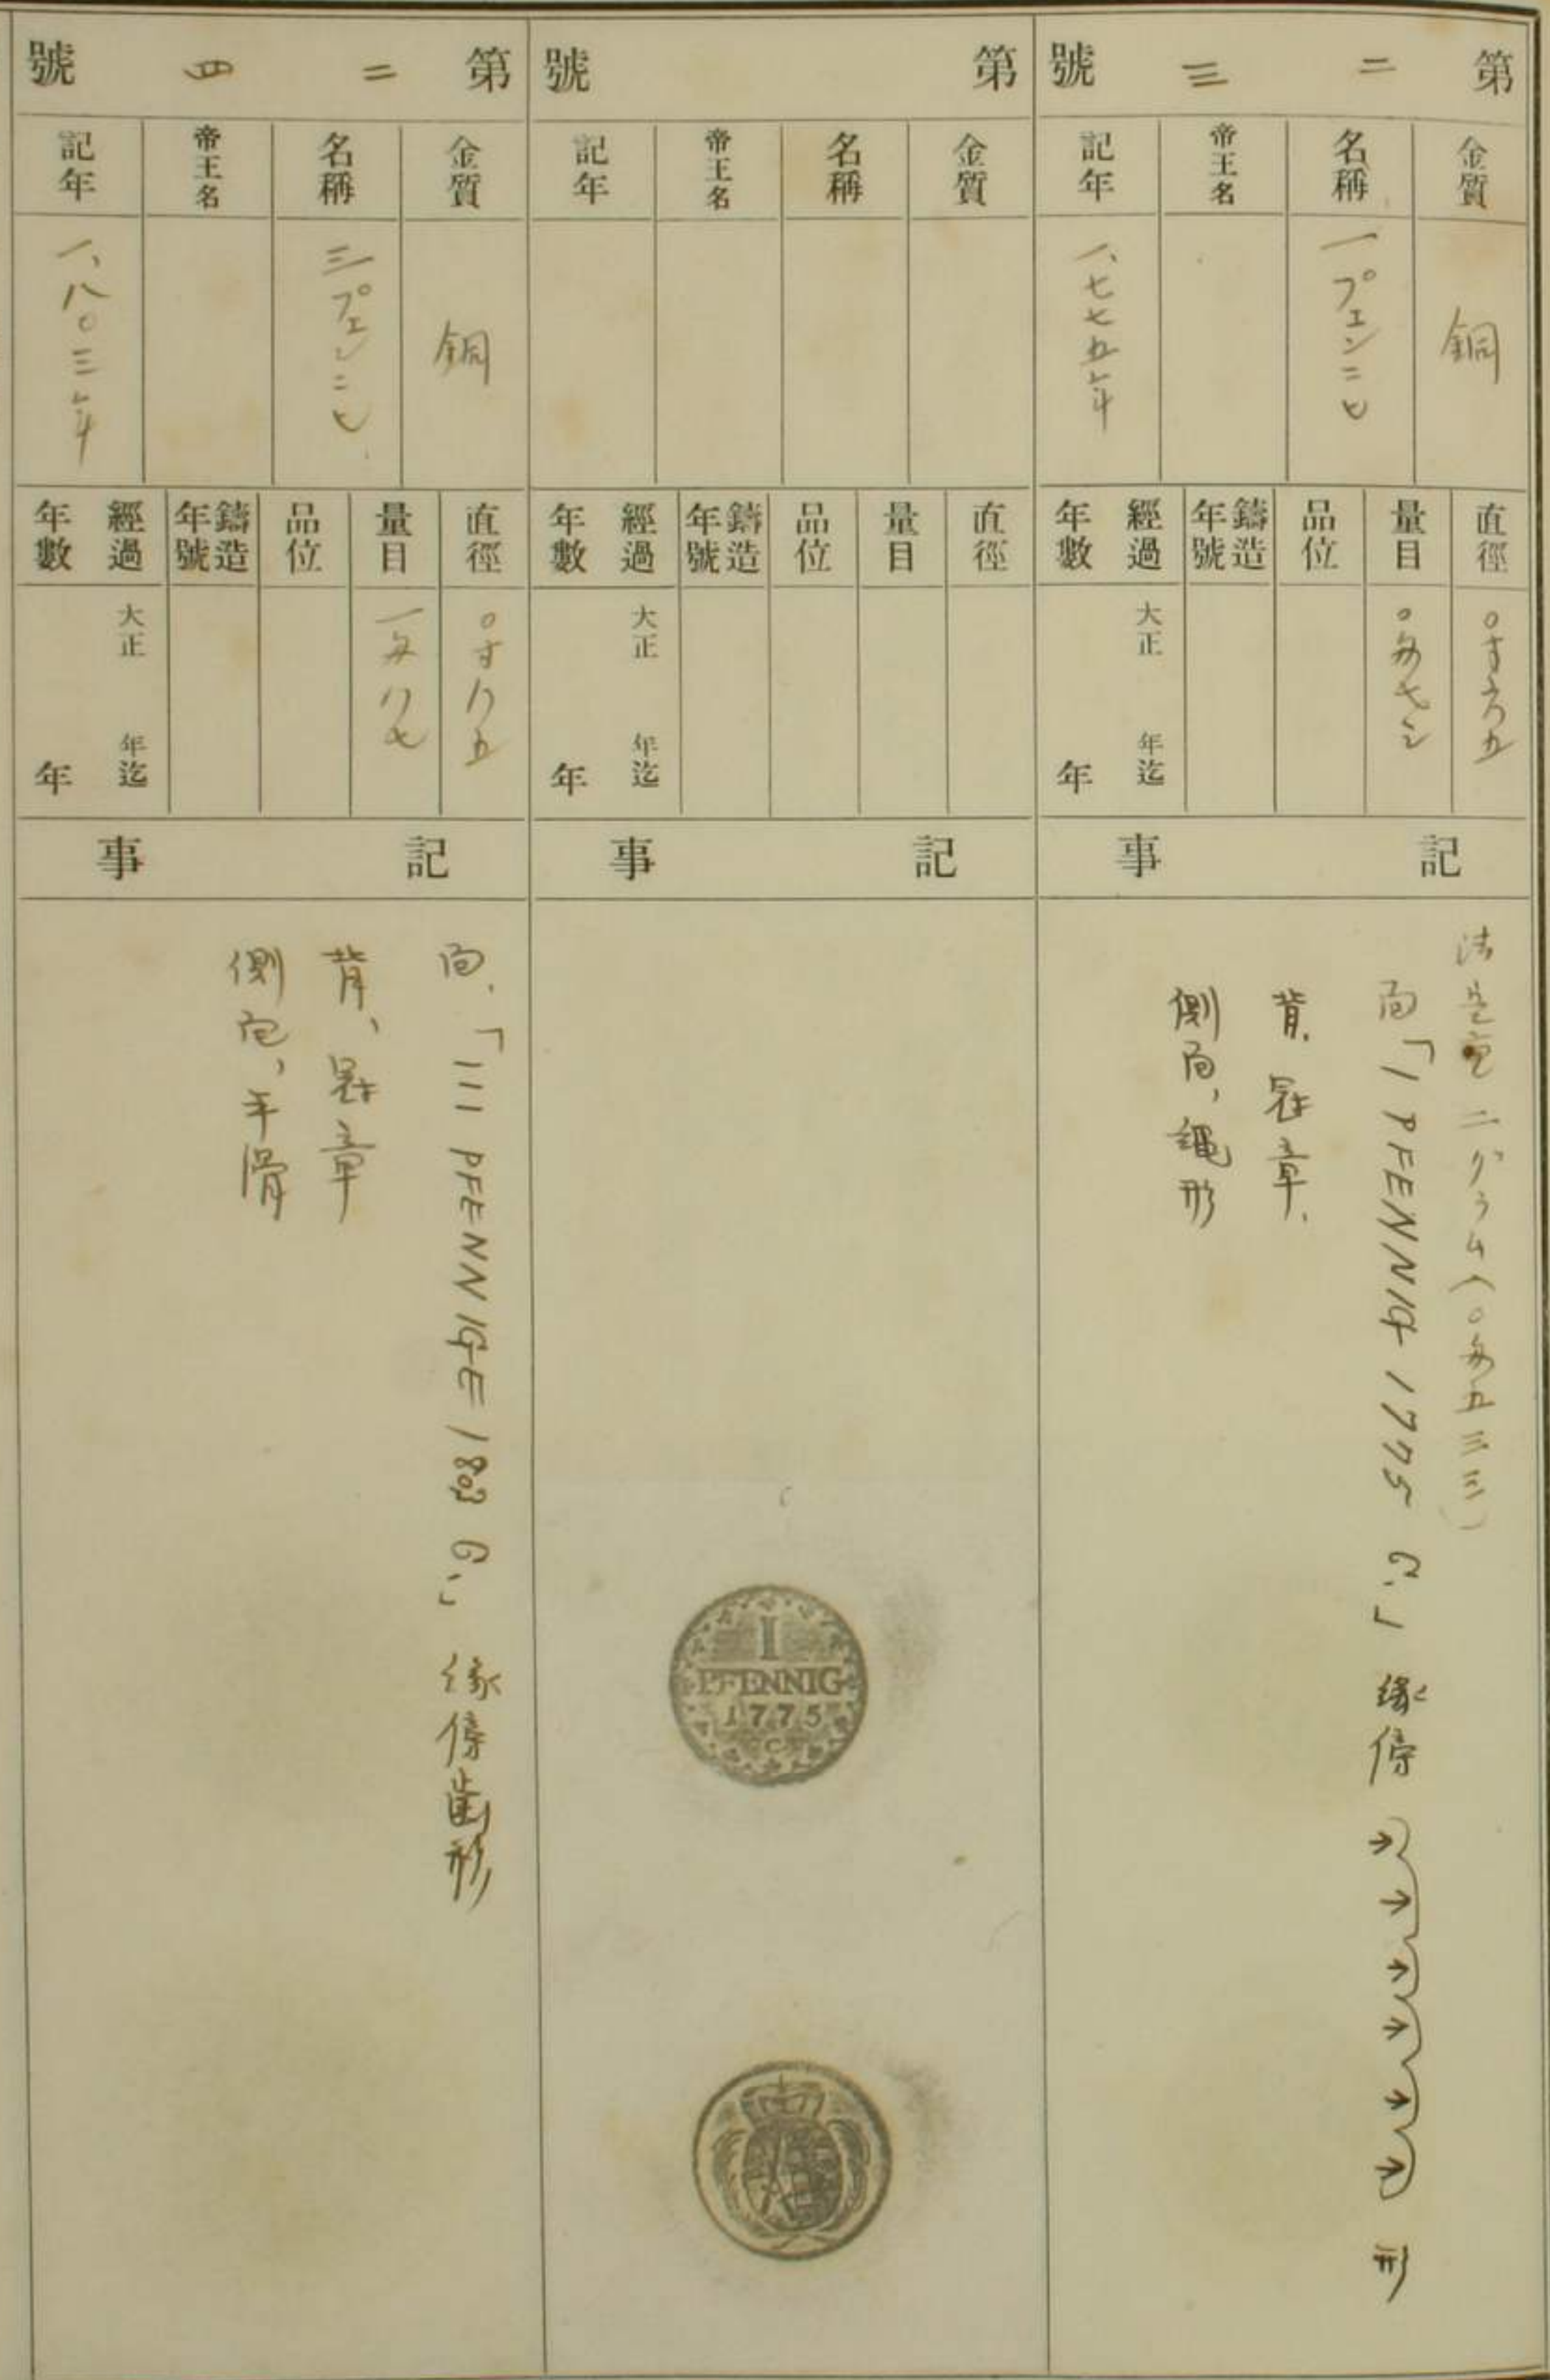 第二三號
金質
銅
名稱
一プェンニヒ
帝王名
記年
一、七七五年
直徑
〇寸六五
量目
〇匁七三
品位
鑄造年號
經過年數
大正 年迄
年
記事
法定量二グラム(〇匁五三三)
面「1 PFENNIG 1775 C.」緣傍 形
背、冠章、
側面、繩形
第 號
金質
名稱
帝王名
記年
直徑
量目
品位
鑄造年號
經過年數
大正 年迄
年
記事
I
PFENNIG
1775
C
第二四號
金質
銅
名稱
三プェンニヒ
帝王名
記年
一、八〇三年
直徑
〇寸八五
量目
一匁八七
品位
鑄造年號
經過年數
大正 年迄
年
記事
面、「III PFENNIGE 1803 C.」緣傍齒形
背、冠章
側面、平滑